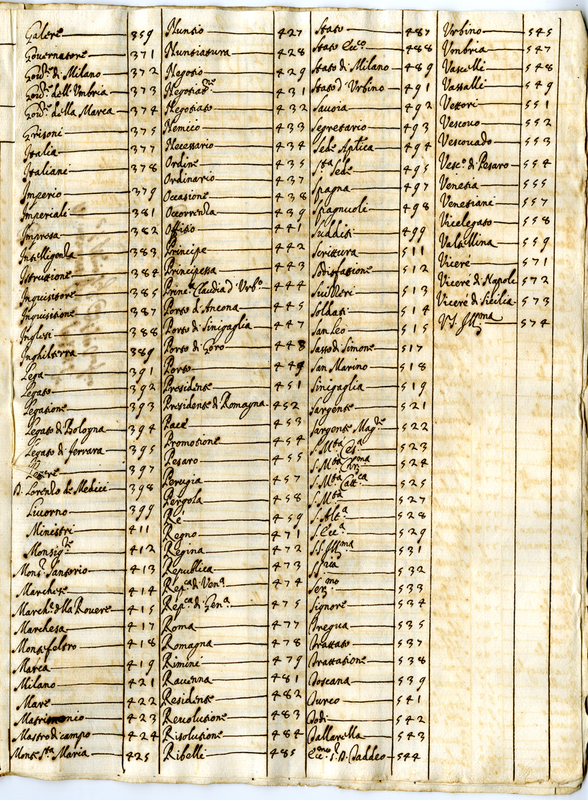 Galere 359
Governatore 371
Govre di Milano 372
Govre dell'Umbria 373
Govre della Marca 374
Grisoni 375
Italia 377
Italiane 378
Imperio 379
Imperiali 381
Impresa 382
Intelligenza 383
Istruttione 384
Inquisitore 385
Inquisitione 387
Inglesi 388
Inghilterra 389
Lega 391
Legato 392
Legatione 393
Legato di Bologna 394
Legato di ferrara 395
Legere 397
D. Lorenzo de Medici 398
Livorno 399
Ministri 411
Monsigre 412
Monsr Santorio 413
Marchese 414
March. della Rovere 415
Marchesa 417
Montefeltro 418
Marca 419
Milano 421
Mare 422
Matrimonio 423
Mastro di campo 424
Monte Sta Maria 425
Nuntio 427
Nuntiatura 428
Negotio 429
Negotiare 431
Negotiato 432
Nemico 433
Necessario 434
Ordine 435
Ordinario 437
Occasione 438
Occorrenza 439
Offitio 441
Principe 442
Principessa 443
Prinsa Claudia d'Urbo 444
Porto d'Ancona 445
Porto di Sinigaglia 447
Porto di Goro 448
Porto 449
Presidente 451
Presidente di Romagna 452
Pace 453
Promotione 454
Pesaro 455
Perugia 457
Pergola 458
Rè 459
Regno 471
Regina 472
Republica 473
Repca di Vena 474
Repca di Gena 475
Roma 477
Romagna 478
Rimini 479
Ravenna 481
Residente 482
Revolutione 483
Risolutione 484
Ribelli 485
Stato 487
Stato Ecco 488
Stato di Milano 489
Stato d'Urbino 491
Savoia 492
Segretario 493
Sede Aptica 494
Sta Sede 495
Spagna 497
Spagnuoli 498
Sudditi 499
Scrittura 511
Sodisfatione 512
Suizzeri 513
Soldati 514
San Leo 515
Sasso di Simone 517
San Marino 518
Sinigaglia 519
Sargente 521
Sargente Magre 522
S. Mtà Ces. 523
S. Mtà Chrma 524
S. Mtà Cattca 525
S. Mtà 527
S. Altа 528
S. Ecca 529
S.S. Illma 531
S. Sria 532
Sermo 533
Signore 534
Tregua 535
Trattato 537
Trattatione 538
Toscana 539
Turco 541
Todi 542
Tallarella 543
Eccmo S. D. Taddeo 544
Urbino 545
Umbria 547
Vascelli 548
Vassalli 549
Vettori 551
Vescovo 552
Vescovado 553
Vesco di Pesaro 554
Venetia 555
Venetiani 557
Vicelegato 558
Valtellina 559
Vicerè 571
Vicerè di Napole 572
Vicerè di Sicilia 573
V.S. Illma 574